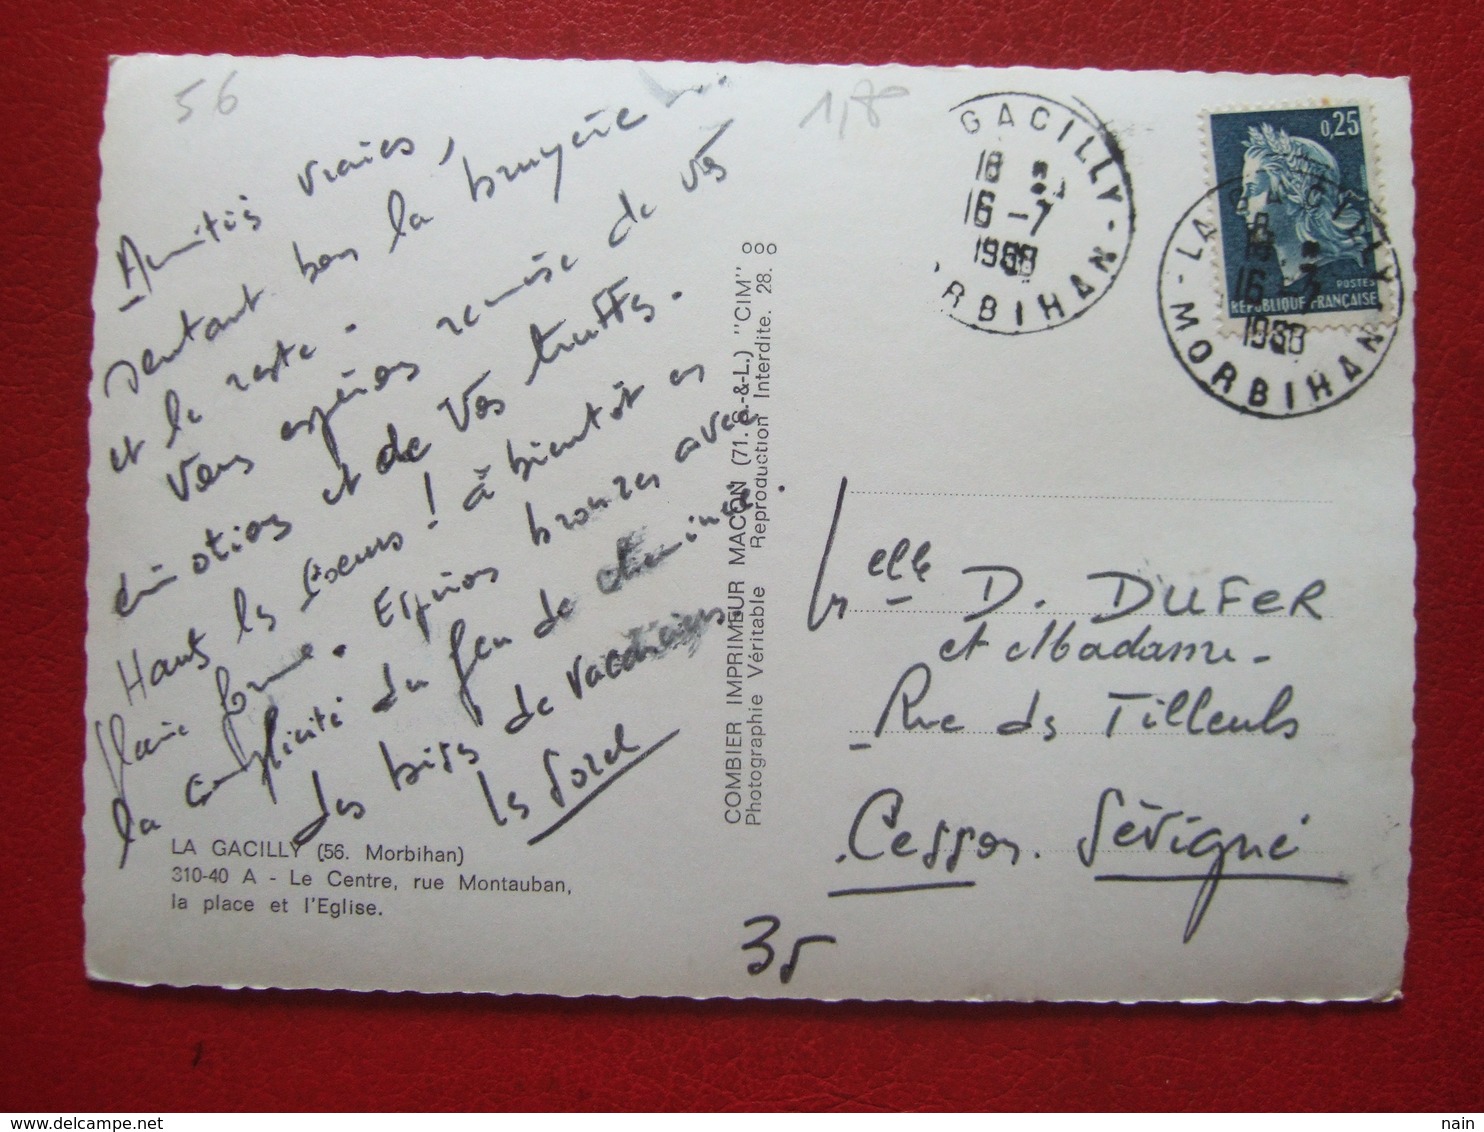 56
1,80
Amitiés vraies,
sentant bon la bruyère
et le reste.
Vous espérons remise de vos
émotions et de vos truffes.
Haut les cœurs ! à bientôt en
pleine forme. Espérons bronzés avec
la complicité du feu de cheminée.
des bises de vacanciers.
les Sorel
LA GACILLY (56. Morbihan)
310-40 A - Le Centre, rue Montauban,
la place et l'Eglise.
COMBIER IMPRIMEUR MACON (71. S.-&-L.) "CIM"
Photographie Véritable Reproduction Interdite. 28.
GACILLY
18 H
16-7
1968
MORBIHAN
0,25
POSTES
REPUBLIQUE FRANÇAISE
LA GACILLY
16-7
1968
MORBIHAN
D. DUFER
et Madame
Rue des Tilleuls
Cesson Sévigné
35
nain_